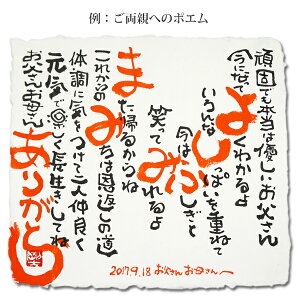 例：ご両親へのポエム
頑固でも本当は優しいお父さん
今になってよくわかるよ
いろんなしっぱいを重ねて
今はふしぎと
笑ってみれるよ
また帰るからね
これからのみちは恩返しの道
体調に気をつけて二人仲良く
元気で楽しく長生きしてね
お父さんお母さん
ありがとう
2017.9.18 お父さんお母さんへ